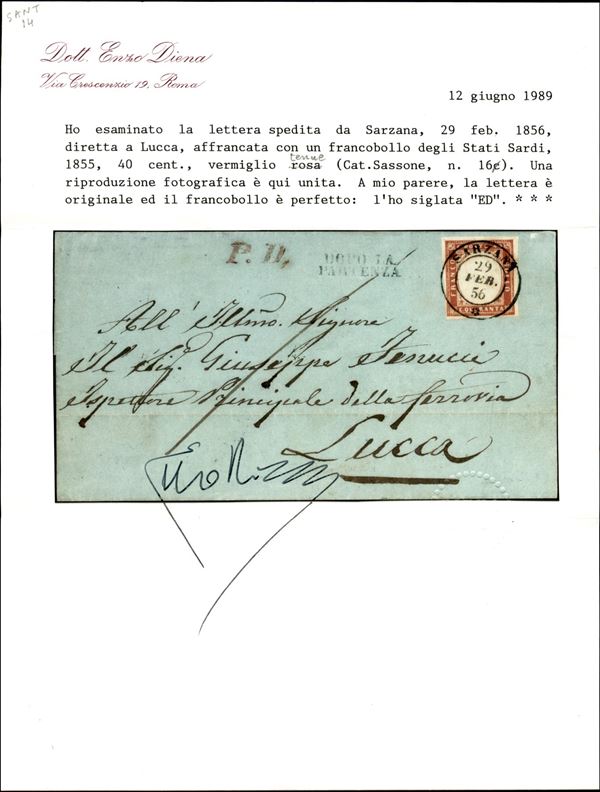 SANT
14
Dott. Enzo Diena
Via Crescenzio 19, Roma
12 giugno 1989
Ho esaminato la lettera spedita da Sarzana, 29 feb. 1856,
diretta a Lucca, affrancata con un francobollo degli Stati Sardi,
tenue
1855, 40 cent., vermiglio rosa (Cat.Sassone, n. 16). Una
riproduzione fotografica è qui unita. A mio parere, la lettera è
originale ed il francobollo è perfetto: l'ho siglata "ED". * * *
P. D.
DOPO LA
PARTENZA
SARZANA
29
FEB.
56
FRANCO
QUARANTA
All' Illmo. Signore
Il Sig. Giuseppe Fenucci
Ispettore Principale della ferrovia
Lucca